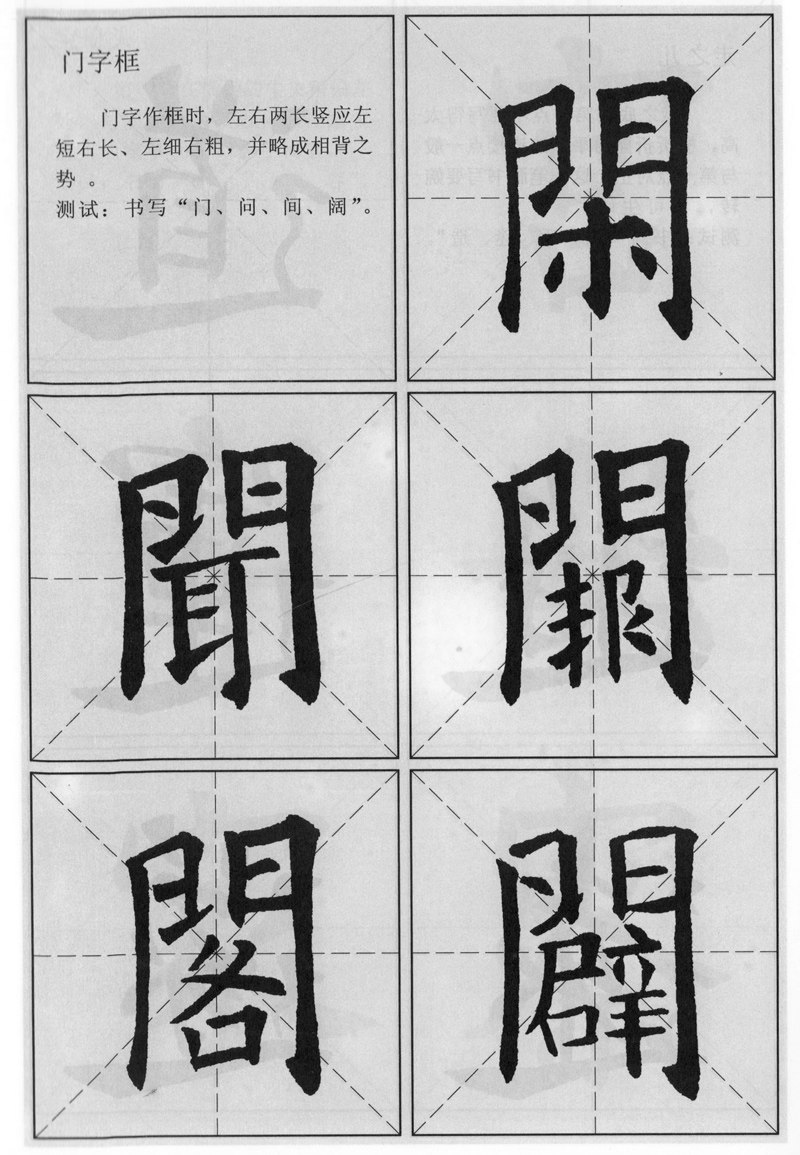 门字框
门字作框时，左右两长竖应左
短右长、左细右粗，并略成相背之
势。
测试：书写“门、问、间、阔”。
閑
聞
閣 闢